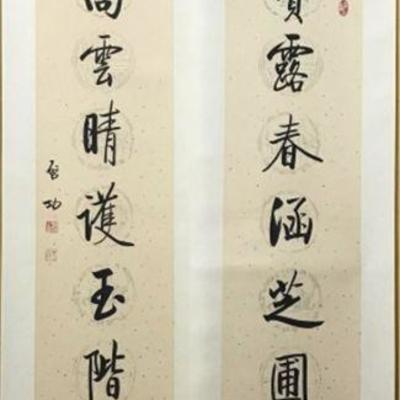 露春涵芝圃
雲晴護玉階
启功